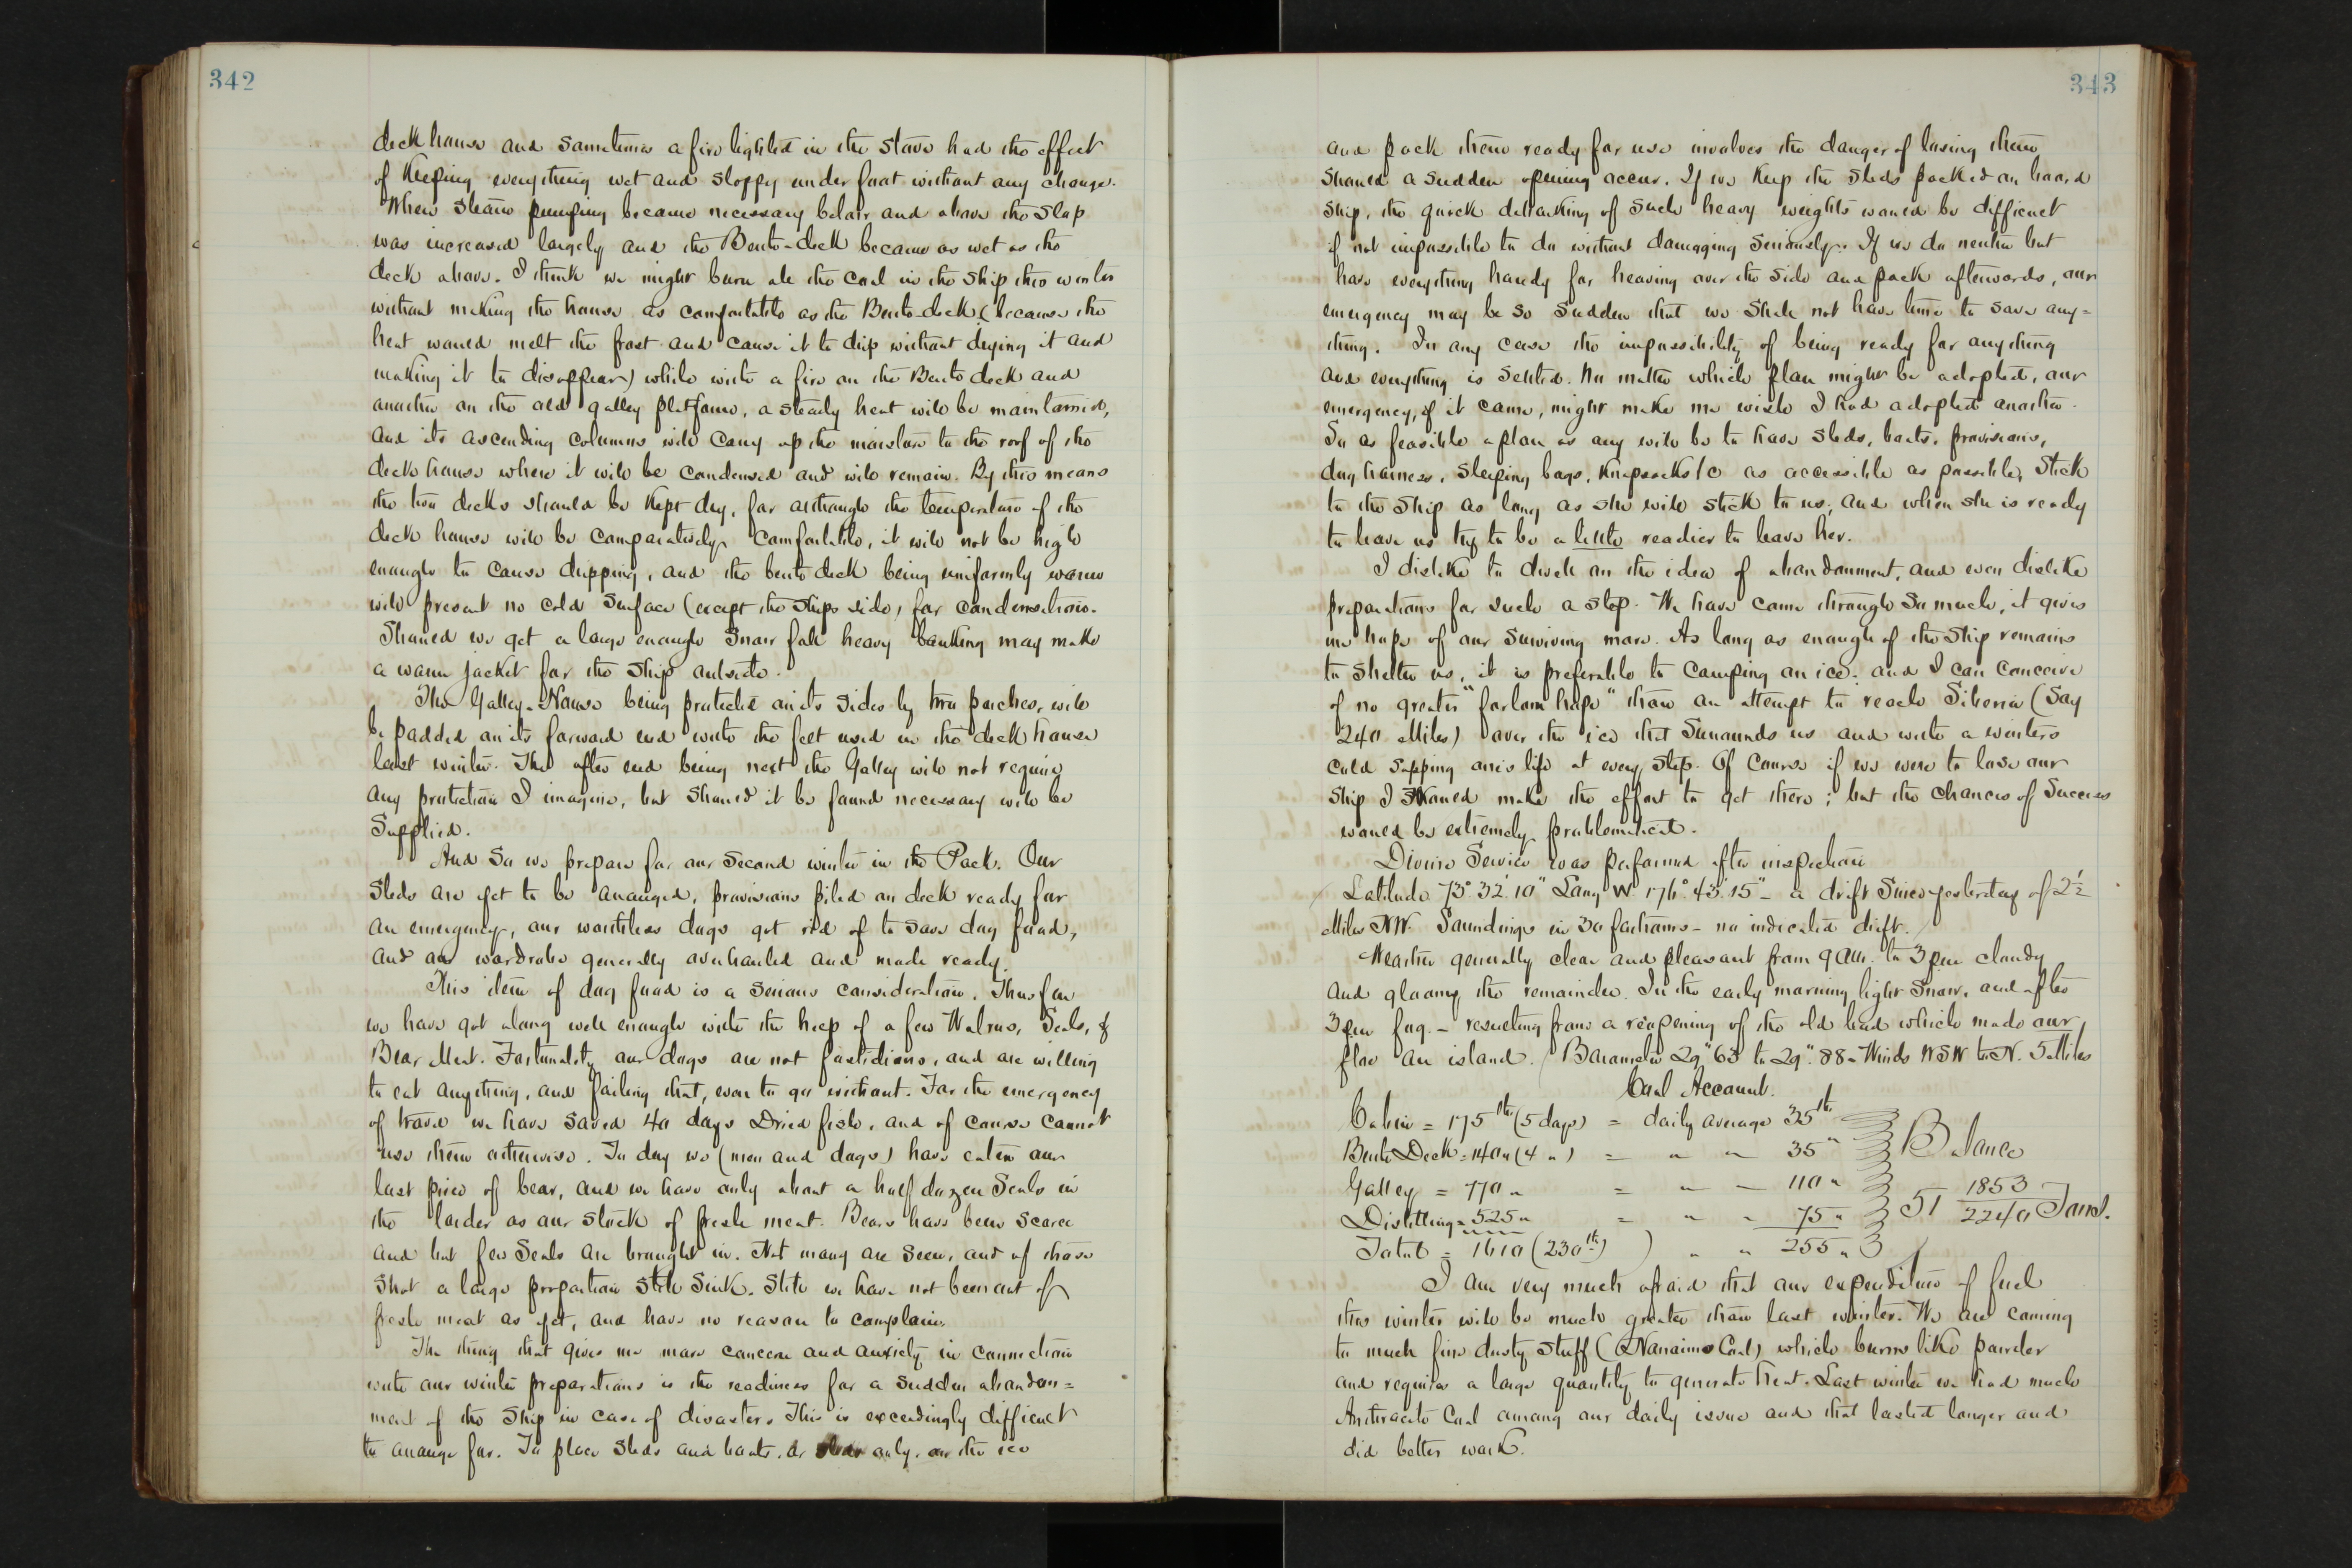 342
deck house and sometimes a fire lighted in the stove had the effect
of keeping everything wet and sloppy under foot without any change.
When steam pumping became necessary below and above the slop
was increased largely and the Berth-deck became as wet as the
deck above. I think we might burn all the coal in the ship this winter
without making the house as comfortable as the Berth-deck (because the
heat would melt the frost and cause it to drip without drying it and
making it to disappear) while with a fire on the Berth deck and
another on the old galley platform, a steady heat will be maintained,
and its ascending columns will carry up the moisture to the roof of the
deck house where it will be condensed and will remain. By this means
the two decks should be kept dry, for although the temperature of the
deck house will be comparatively comfortable, it will not be high
enough to cause dripping, and the berth deck being uniformly warm
will present no cold surface (except the ships side) for condensation.
Should we get a large enough snow fall heavy banking may make
a warm jacket for the ship outside.
The Galley-House being protected on its sides by two porches, will
be padded on its forward end with the felt used in the deck house
last winter. The after end being next the Galley will not require
any protection I imagine, but should it be found necessary will be
supplied.
And so we prepare for our second winter in the Pack. Our
sleds are yet to be arranged, provisions piled on deck ready for
an emergency, our worthless dogs got rid of to save dog food,
and our wardrobe generally overhauled and made ready.
This item of dog food is a serious consideration. Thus far
we have got along well enough with the help of a few Walrus, Seals, &
Bear Meat. Fortunately our dogs are not fastidious, and are willing
to eat anything, and failing that, even to go without. For the emergency
of travel we have saved 40 days Dried fish, and of course cannot
use them otherwise. To day we (men and dogs) have eaten our
last piece of bear, and we have only about a half dozen Seals in
the larder as our stock of fresh meat. Bears have been scarce
and but few Seals are brought in. Not many are seen, and of those
shot a large proportion still sink. Still we have not been out of
fresh meat as yet, and have no reason to complain.
The thing that gives me more concern and anxiety in connection
with our winter preparations is the readiness for a sudden abandon=
ment of the ship in case of disaster. This is exceedingly difficult
to arrange for. To place sleds and boats, or sleds only, on the ice
343
and pack them ready for use involves the danger of losing them
should a sudden opening occur. If we keep the sleds packed on board
ship, the quick debarking of such heavy weights would be difficult
if not impossible to do without damaging seriously. If we do neither but
have everything handy for heaving over the side and pack afterwords, our
emergency may be so sudden that we shall not have time to save any=
thing. In any case the impossibility of being ready for anything
and everything is settled. No matter which plan might be adopted, our
emergency, if it came, might make me wish I had adopted another.
So as feasible a plan as any will be to have sleds, boats, provisions,
dog harness, sleeping bags, knapsacks &c as accessible as possible, stick
to the ship as long as she will stick to us, and when she is ready
to leave us try to be a little readier to leave her.
I dislike to dwell on the idea of abandonment, and even dislike
preparations for such a step. We have come through so much, it gives
me hope of our surviving more. As long as enough of the ship remains
to shelter us, it is preferable to camping on ice: and I can conceive
of no greater "forlorn hope" than an attempt to reach Siberia (say
240 Miles) over the ice that surrounds us and with a winters
cold sapping ones life at every step. Of course if we were to lose our
ship I should make the effort to get there; but the chances of success
would be extremely problematical.
Divine Service was performed after inspection
Latitude 73° 32' 10" Long W 176° 43' 15" - a drift since yesterday of 2½
Miles NW. Soundings in 30 fathoms - no indicated drift.
Weather generally clear and pleasant from 9 am. to 3 pm cloudy
and gloomy the remainder. In the early morning light snow, and after
3 pm fog. - resulting from a reopening of the old lead which made our
floe an island. Barometer 29".63 to 29".88 - Winds WSW to N. 5 Miles
Coal Account.
Cabin = 175 lbs (5 days) = daily average 35 lbs
Berth Deck = 140 " (4 ") = " " 35 " Balance
Galley = 770 " = " " 110 "
Distilling = 525 " = " " 75 " 51 1853/2240 Tons.
Total = 1610 (230 lbs) " " 255 "
I am very much afraid that our expenditure of fuel
this winter will be much greater than last winter. We are coming
to much fine dusty stuff (Nanaimo Coal) which burns like powder
and requires a large quantity to generate heat. Last winter we had much
Anthracite Coal among our daily issue and that lasted longer and
did better work.